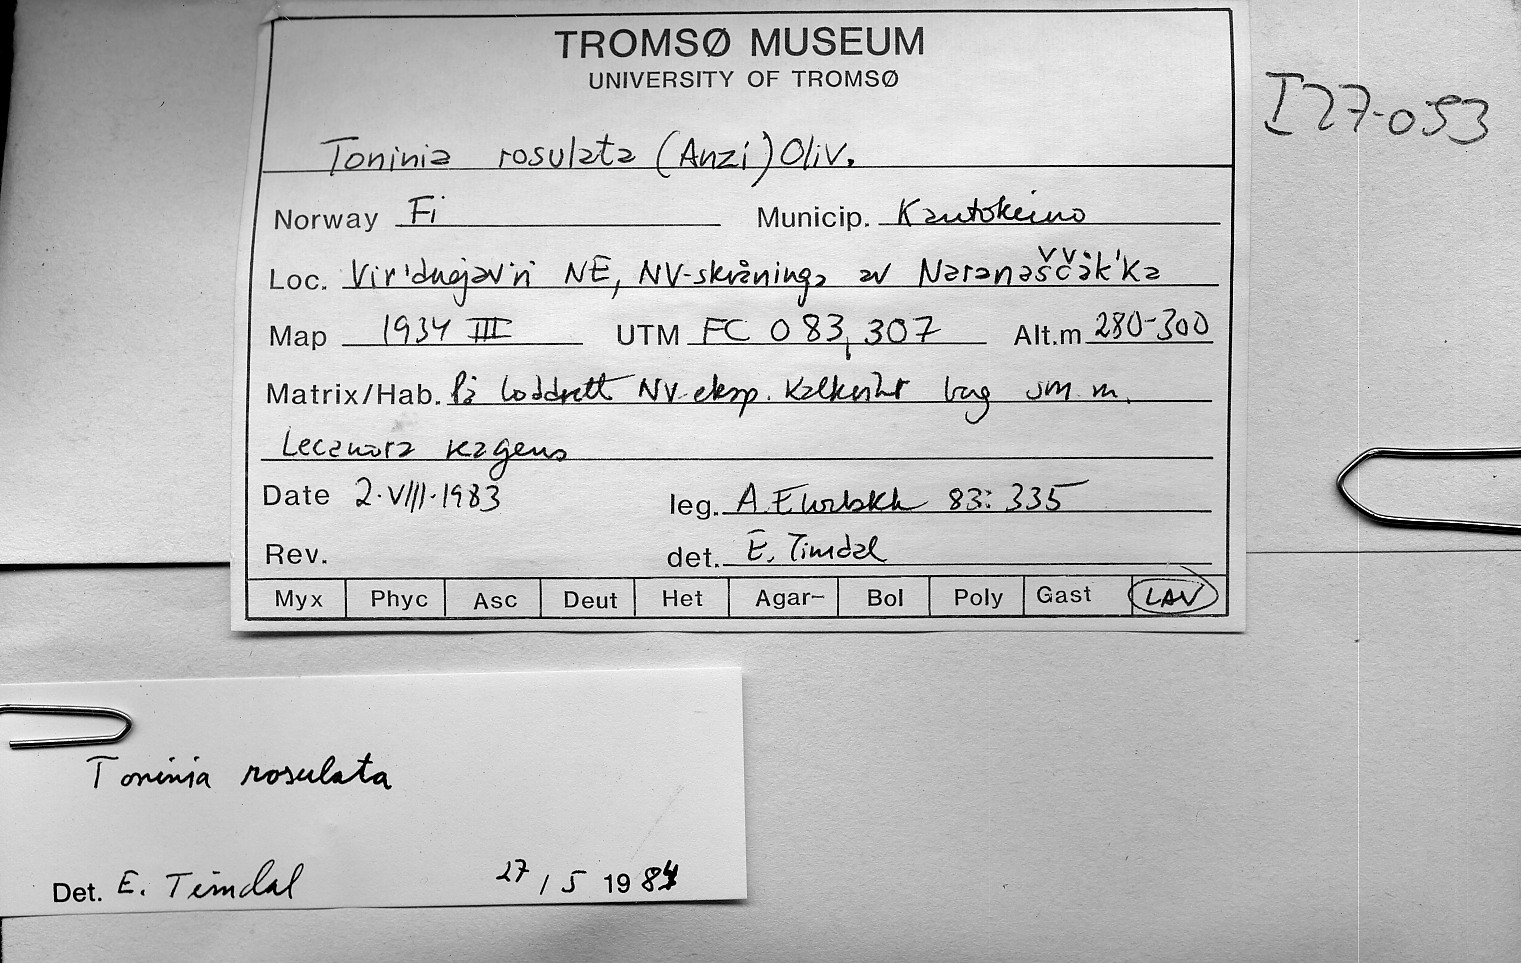 TROMSØ MUSEUM
UNIVERSITY OF TROMSØ
I27-053
Toninia rosulata (Anzi) Oliv.
Norway Fi Municip. Kautokeino
Loc. Vir'dnejav'ri NE, NV-skråninga av Naranaščåk'ka
Map 1934 III UTM FC 083,307 Alt.m 280-300
Matrix/Hab. På loddrett NV-eksp. berg sm. m.
Lecanora
Date 2.VIII.1983 leg. A. Elvebakk 83:335
Rev. det. E. Timdal
Myx Phyc Asc Deut Het Agar- Bol Poly Gast LAV
Toninia rosulata
Det. E. Timdal 27/5 1984